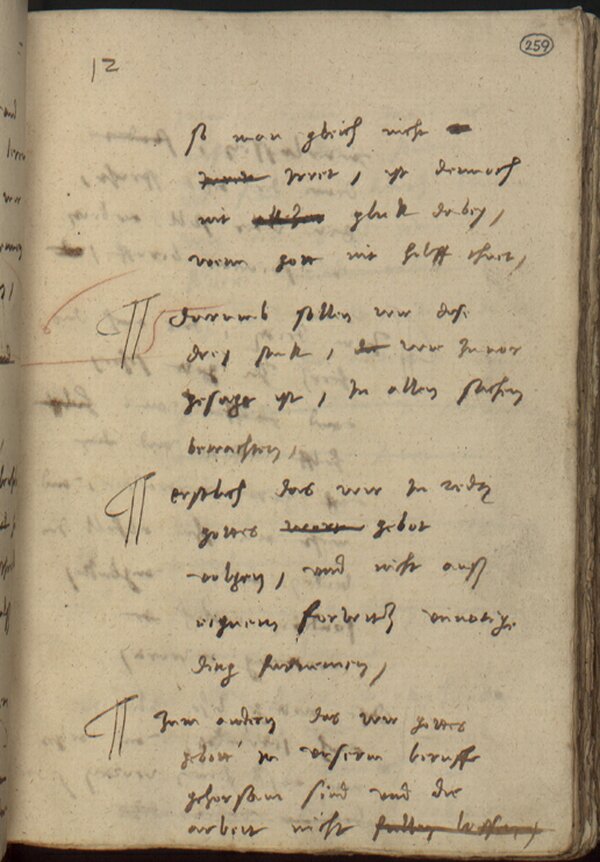 259
12
so man gleich nicht
irret, ist dennoch
nit glük dabey,
wenn gott nit hilfft
¶ darumb sollen wir dise
drey stuk, wie zuvor
gesagt ist, in allen sachen
betrachten,
¶ erstlich das wir
gottes gebot
volgen, und nicht auß
eignem furwitz unnotige
ding furnemen,
¶ zum andern das wir gottes
gebott in unserm beruffe
gehorsam sind und die
arbeit nicht